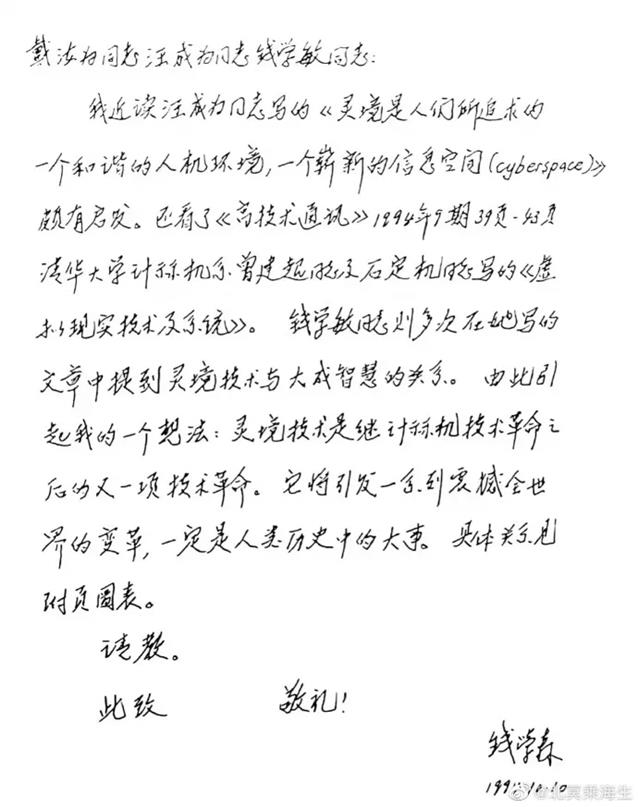 戴汝为同志汪成为同志钱学敏同志:
我近读汪成为同志写的《灵境是人们所追求的
一个和谐的人机环境,一个崭新的信息空间(cyberspace)》
颇有启发。还看了《高技术通讯》1994年9期39页-43页
清华大学计算机系曾建超同志及石定机同志写的《虚
拟现实技术及系统》。 钱学敏同志则多次在她写的
文章中提到灵境技术与大成智慧的关系。由此引
起我的一个想法:灵境技术是继计算机技术革命之
后的又一项技术革命。它将引发一系列震撼全世
界的变革,一定是人类历史中的大事。具体关系见
附页图表。
请教。
此致 敬礼!
钱学森
10.10
@北冥乘海生